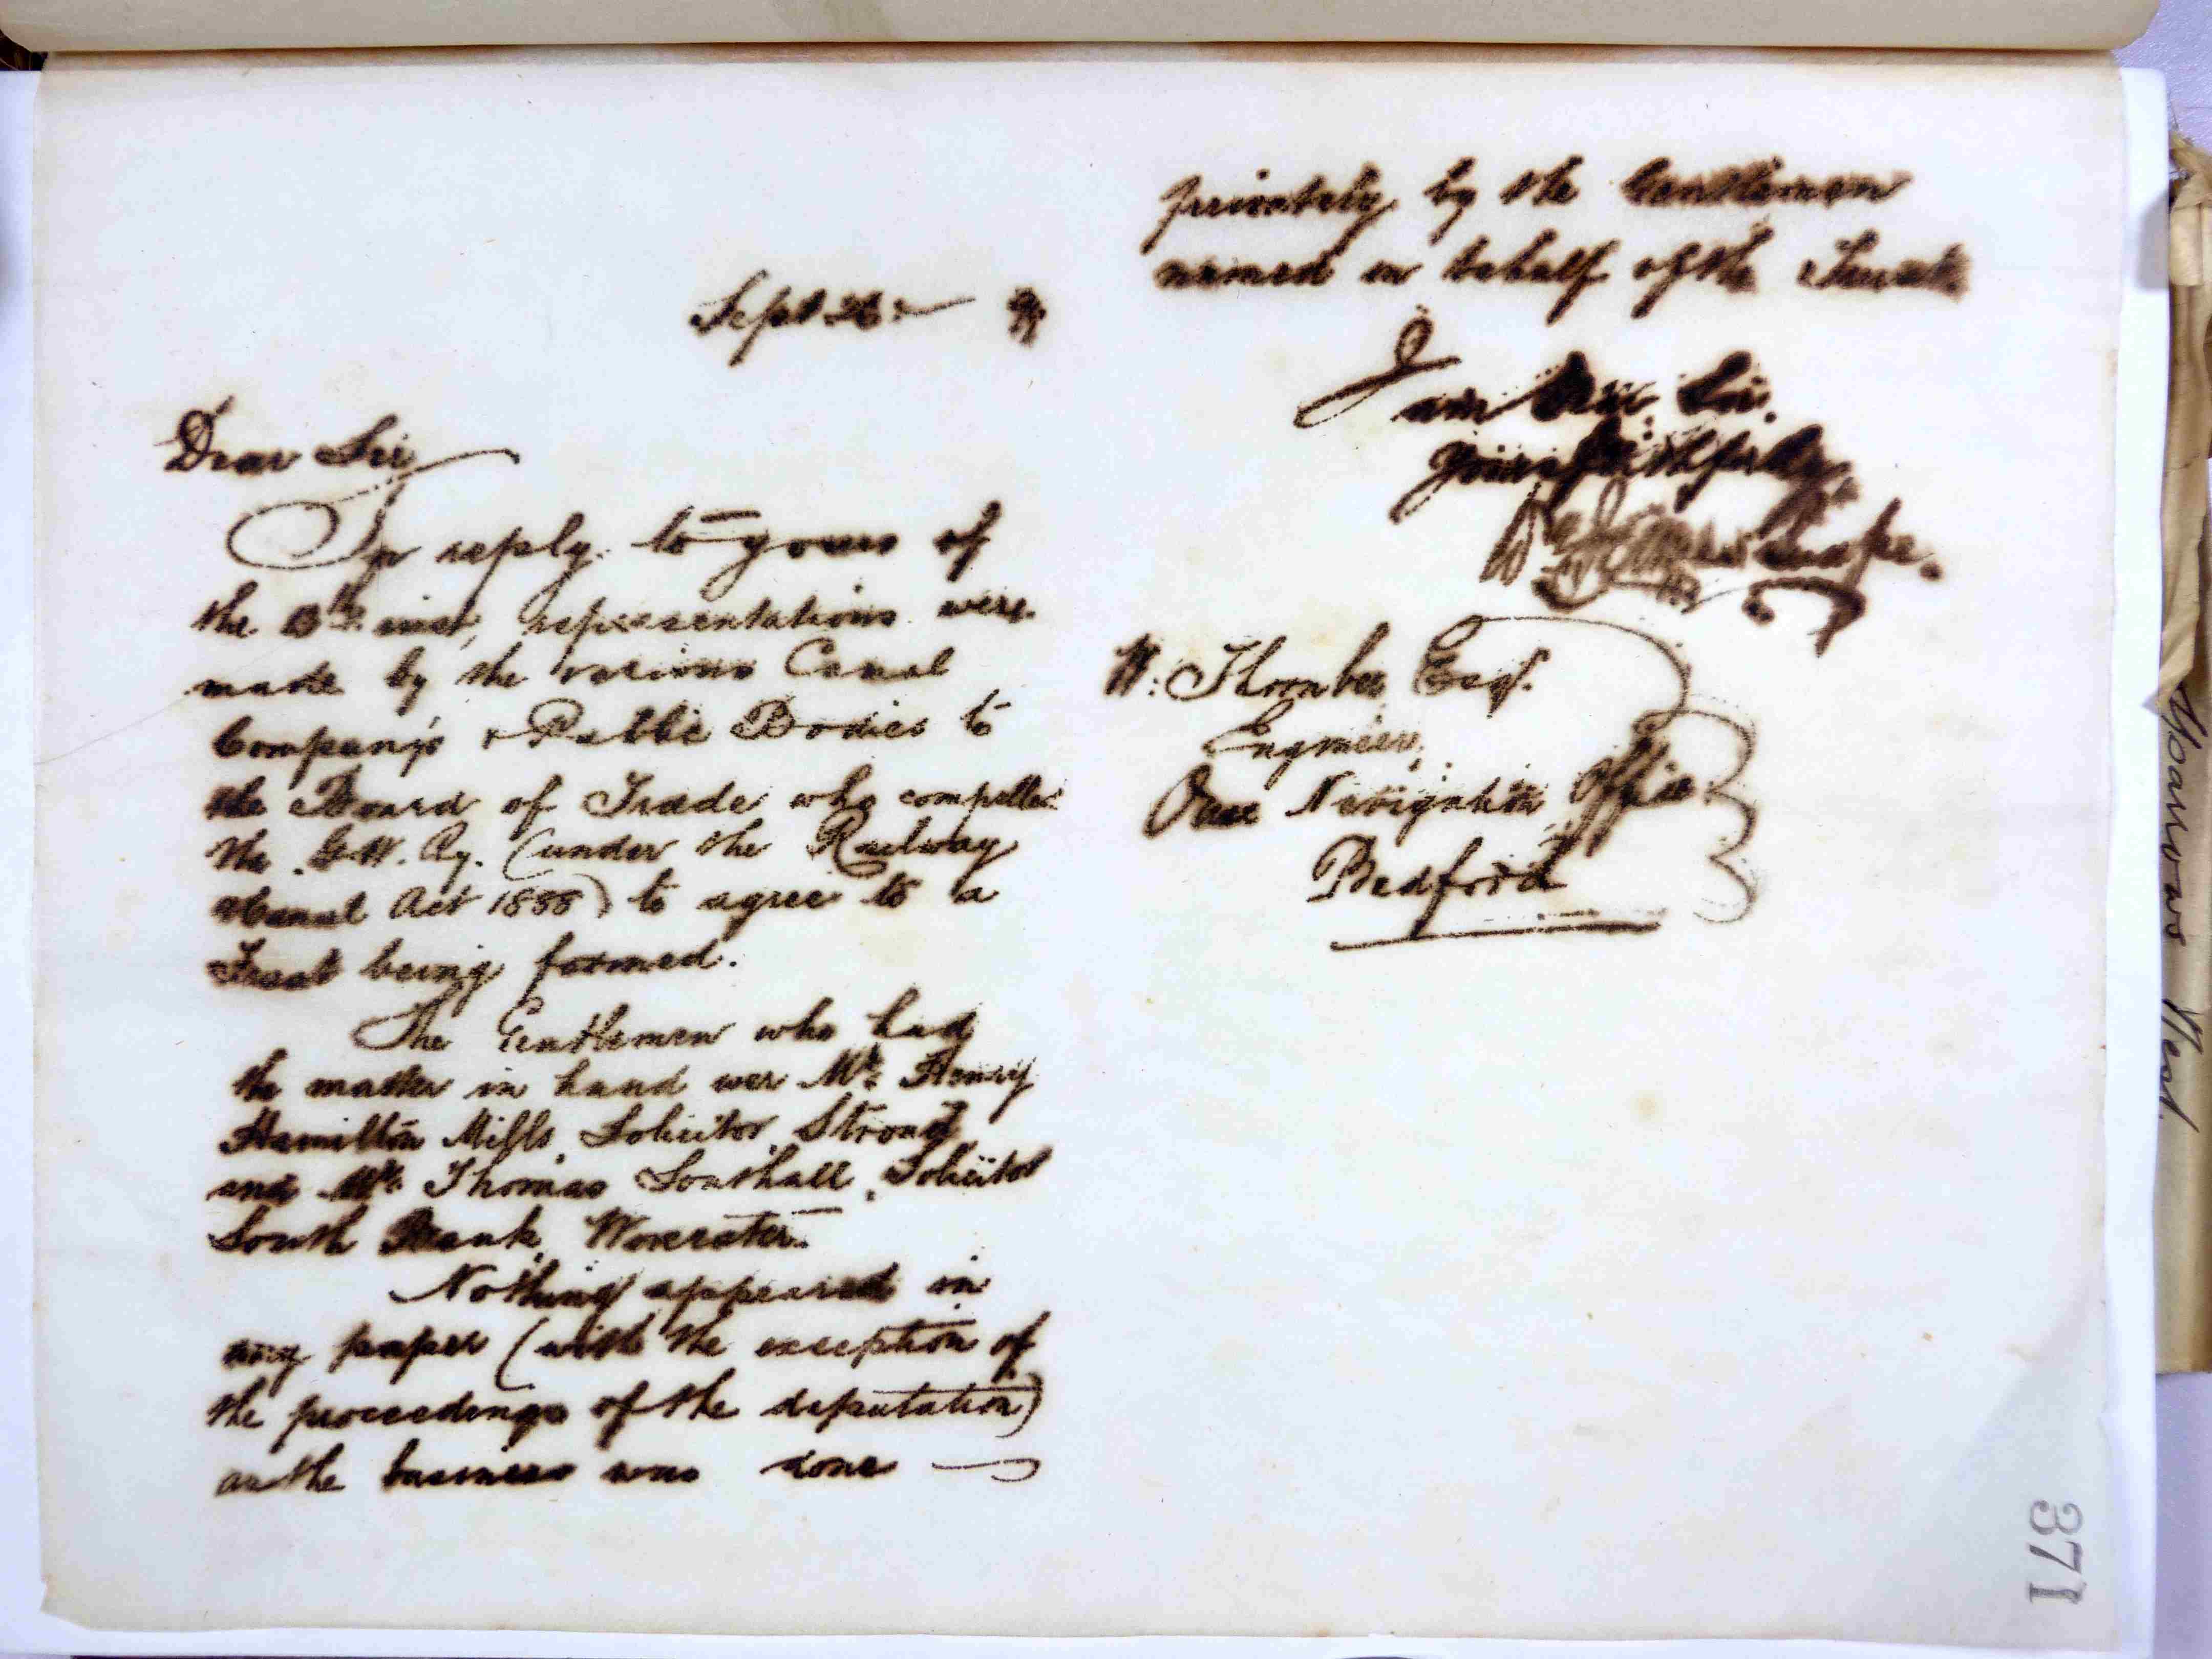 Sept 26
Dear Sir
In reply to yours of
the inst, representations were
made by the various Canal
Company's & Public Bodies to
the Board of Trade who compelled
the G.W. Ry. (under the Railway
& Canal Act 1888) to agree to a
Trust being formed.
The Gentlemen who had
the matter in hand wer Mr. Henry
Hamilton Mills, Solicitor, Stroud,
and Mr. Thomas Southall, Solicitor
South Bank, Worcester.
Nothing appeared in
any paper (with the exception of
the proceedings of the deputation)
as the business was done
privately by the Gentlemen
named on behalf of the Trust
I
am Dear Sir,
yours faithfully,
Snape.
W. Thornber Esq.
Engineer,
Ouse Navigation Office
Bedford
371